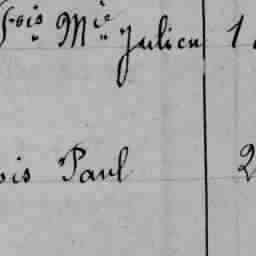 Fois Mie Julien 1
ois Paul 2